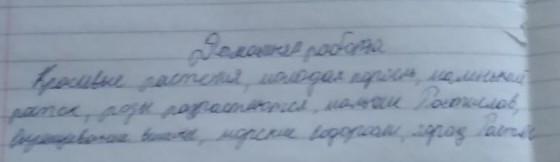 Домашняя работа
Красивые растения, молодая поросль, маленький
росток, розы разрастаются, мальчик Ростислав,
выращивание вишни, морские водоросли, город Ростов